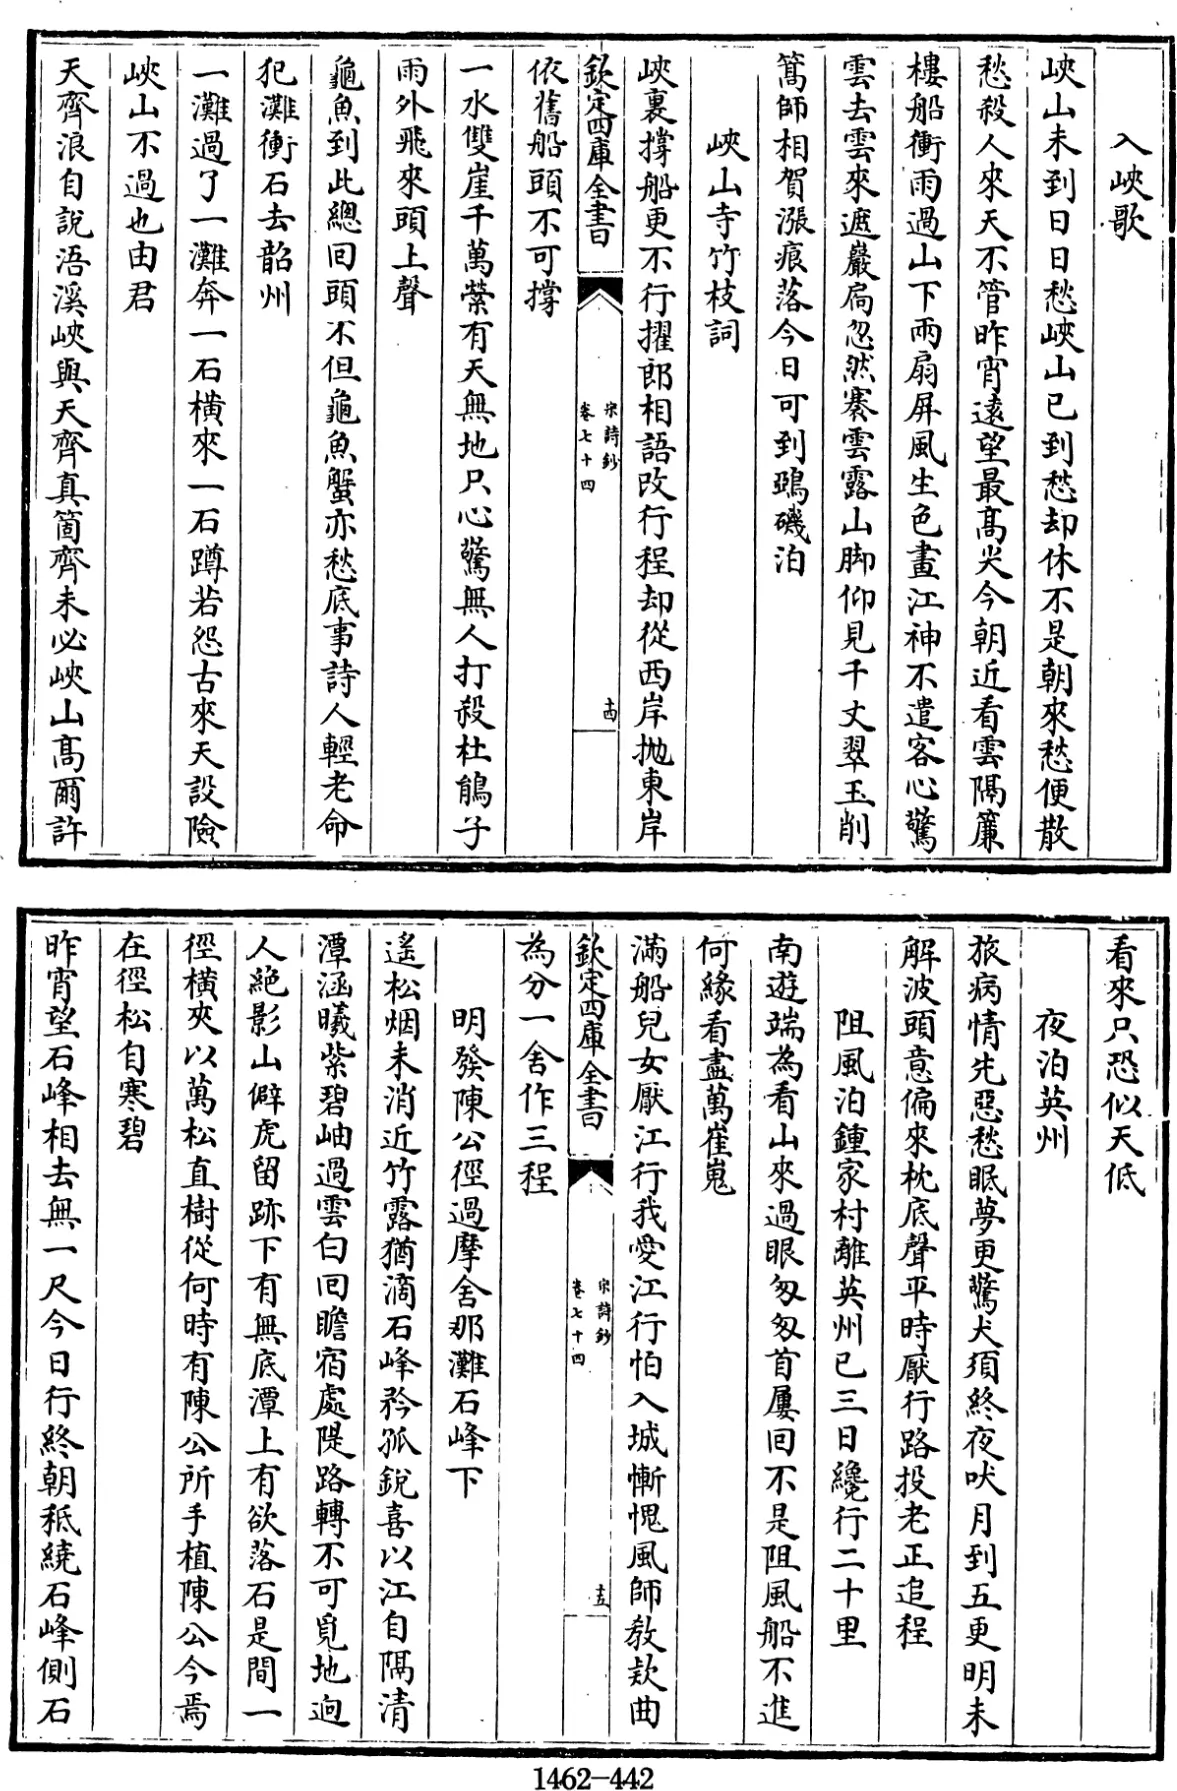 入峽歌
峽山未到日日愁峽山已到愁却休不是朝來愁便散
愁殺人來天不管昨宵遠望最髙尖今朝近看雲隔簾
樓船衝雨過山下兩扇屏風生色畫江神不遣客心驚
雲去雲來遮巖扃忽然褰雲露山脚仰見千丈翠玉削
篙師相賀漲痕落今日可到鵶磯泊
峽山寺竹枝詞
峽裏撐船更不行擢郎相語改行程却從西岸抛東岸
欽定四庫全書
宋詩鈔
卷七十四
十四
依舊船頭不可撐
一水雙崖千萬縈有天無地只心驚無人打殺杜鵑子
雨外飛來頭上聲
龜魚到此總回頭不但龜魚蟹亦愁底事詩人輕老命
犯灘衝石去韶州
一灘過了一灘奔一石橫來一石蹲若怨古來天設險
峽山不過也由君
天齊浪自說浯溪峽與天齊真箇齊未必峽山髙爾許
看來只恐似天低
夜泊英州
旅病情先惡愁眠夢更驚犬須終夜吠月到五更明未
解波頭意偏來枕底聲平時厭行路投老正追程
阻風泊鍾家村離英州已三日纔行二十里
南遊端為看山來過眼匆匆首屢回不是阻風船不進
何緣看盡萬崔嵬
滿船兒女厭江行我愛江行怕入城慚愧風師敎欵曲
欽定四庫全書
宋詩鈔
卷七十四
十五
為分一舍作三程
明發陳公徑過摩舍那灘石峰下
遙松烟未消近竹露猶滴石峰矜孤銳喜以江自隔清
潭涵曦紫碧岫過雲白回瞻宿處隄路轉不可覓地逈
人絶影山僻虎留跡下有無底潭上有欲落石是間一
徑橫夾以萬松直樹從何時有陳公所手植陳公今焉
在徑松自寒碧
昨宵望石峰相去無一尺今日行終朝秪繞石峰側石
1462-442